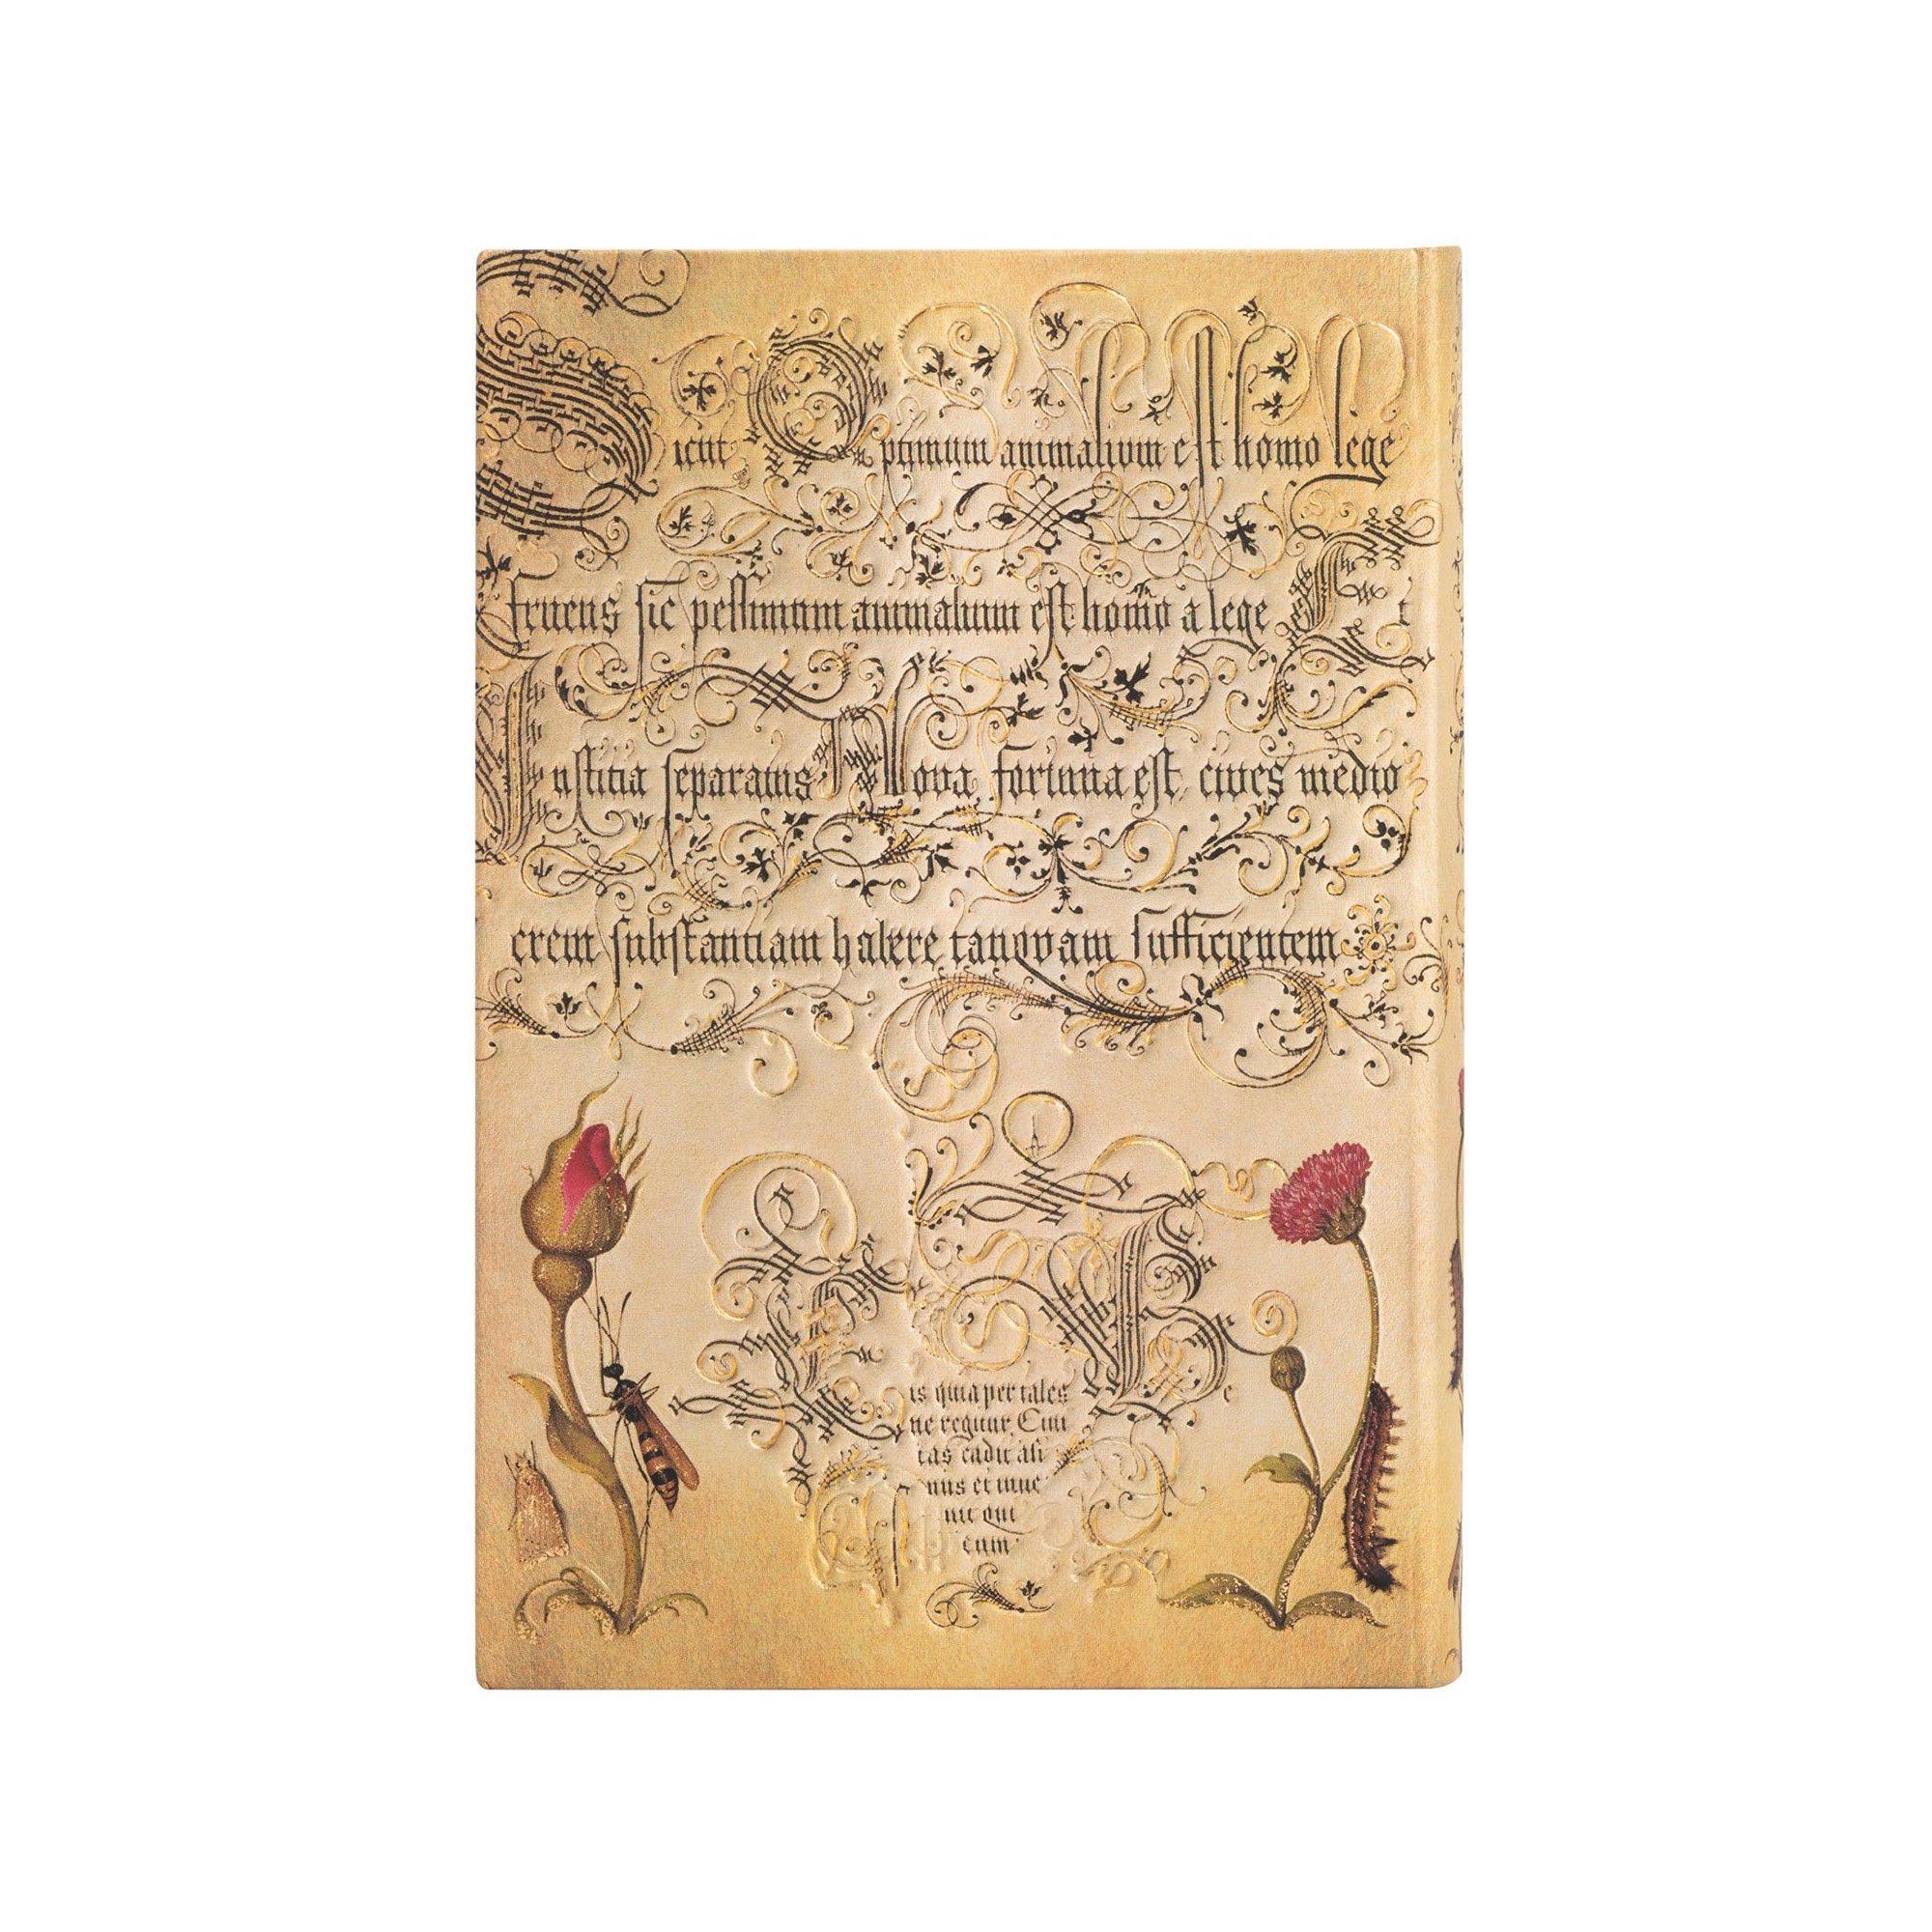 Sicut Optimum animalium est homo lege
fruens sic pessimum animalium est homo a lege Et
Iustitia separatus Nova fortuna est cives medio
crem substantiam habere tanqvam sufficientem
His quia per tales Be
ne regitur. Civi
tas cadit ali
nus et inve
nit qui
cum